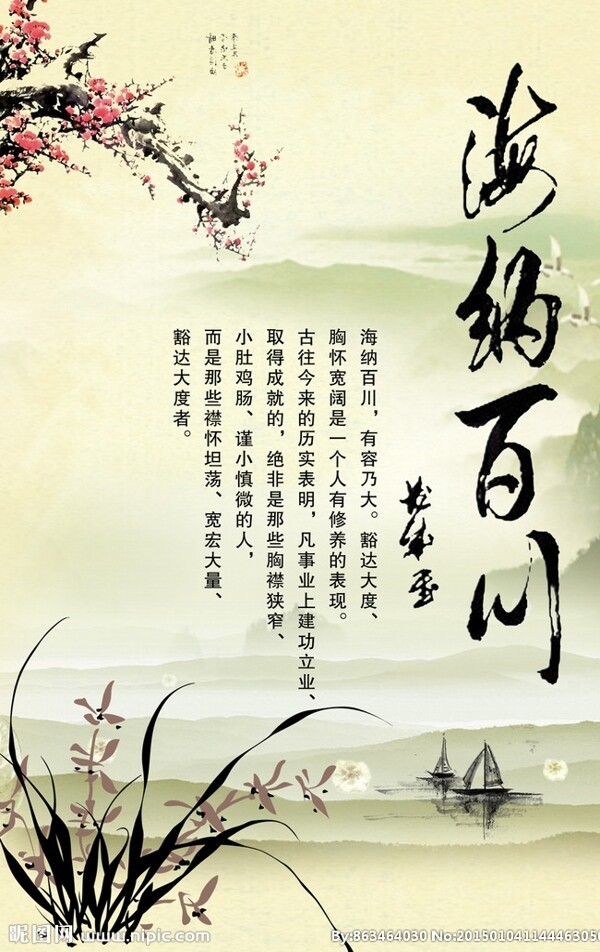 海纳百川
海纳百川，有容乃大。豁达大度、
胸怀宽阔是一个人有修养的表现。
古往今来的历实表明，凡事业上建功立业、
取得成就的，绝非是那些胸襟狭窄、
小肚鸡肠、谨小慎微的人，
而是那些襟怀坦荡、宽宏大量、
豁达大度者。
昵图网 www.nipic.com
By:863464030 No:201501041144463050